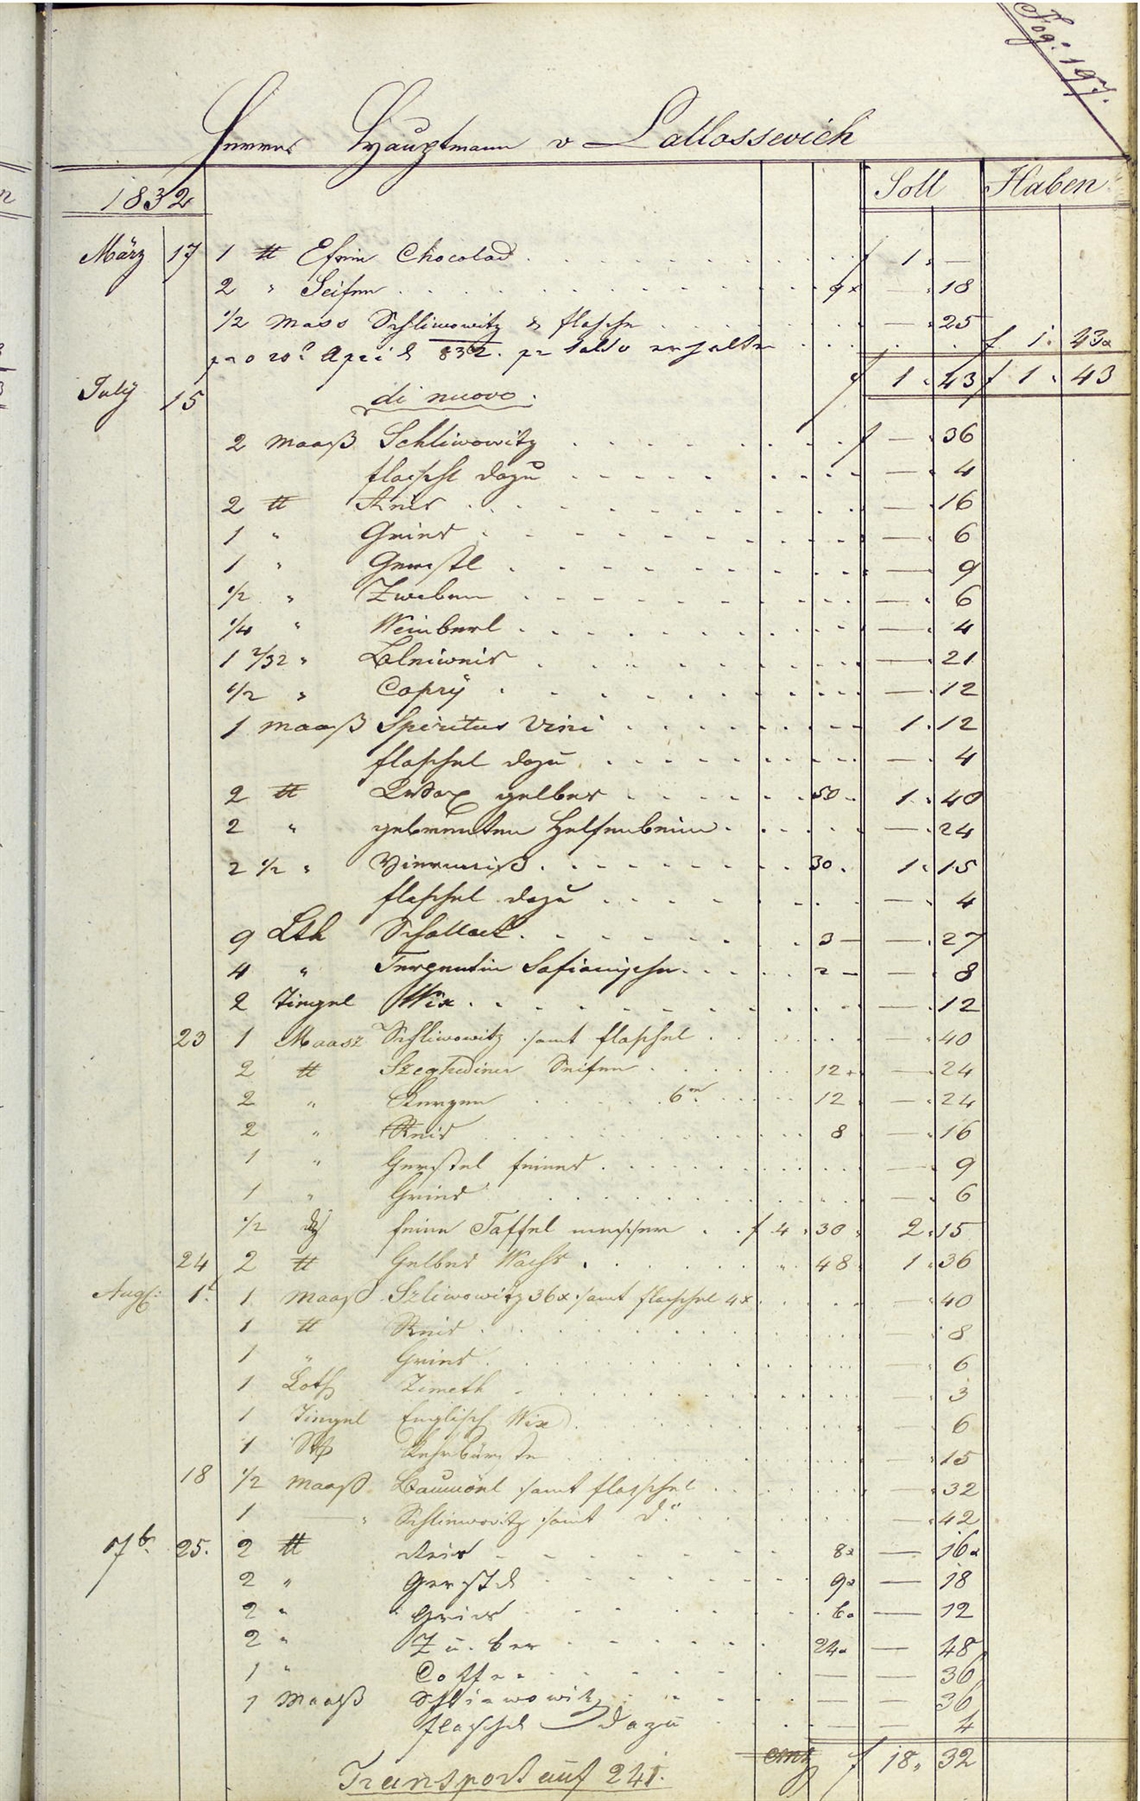 Fog: 197.
Herrn Hauptmann v Lallossevich
1832 Soll Haben
März 17 1 ℔ Chocolad 1. —
2 " Seifen 9x — 18
1/2 Mass Schliwowitz & flasche — 25
pr 20t April 832. pr Saldo erhalten f 1. 43x
f 1. 43 f 1. 43
July 15 di nuovo.
2 Maaß Schliwowitz f — 36
flaschl dazu — 4
2 ℔ Reis — 16
1 " Gries — 6
1 " Gerstl — 9
1/2 " Zweben — 6
1/4 " Weinberl — 4
1 2/32 " Bleiweis — 21
1/2 " Copry — 12
1 Maaß Spiritus Vini 1. 12
flaschel dazu — 4
2 ℔ gelber 50 1. 40
2 " gebrennten Helfenbein — 24
2 1/2 " 30. 1. 15
flaschel dazu — 4
9 Lth Schallack 3 — — 27
4 " Terpentin 2 — — 8
2 Tiegel Wix — 12
23 1 Maasz Schliwowitz samt flaschel — 40
2 ℔ Szeghediner Seifen 12 — 24
2 " Kerzen 6er 12 — 24
2 " Reis 8 — 16
1 " Gerstel feines — 9
1 " Gries — 6
1/2 feine Taffel messer f 4. 30 2. 15
24 2 ℔ Gelbes Wachs 48 1. 36
Augs: 1t 1 Maaß Szliwowitz 36x samt flaschel 4x — 40
1 ℔ Reis — 8
1 " Gries — 6
1 Loth Zimeth — 3
1 Tiegel Englisch Wix 6
1 Stk Kehrbürste — 15
18 1/2 Maaß Baumöhl samt flaschel — 32
1 — " Schliwowitz samt do — 42
7b. 25. 2 ℔ Reis 8x — 16x
2 " Gerstl 9x — 18
2 " Gries 6x — 12
2 " 24x — 48
1 " Coffee — — 36
1 Maaß Schliwowitz — — 36
flaschel dazu — — 4
f 18. 32
Transport auf 241.